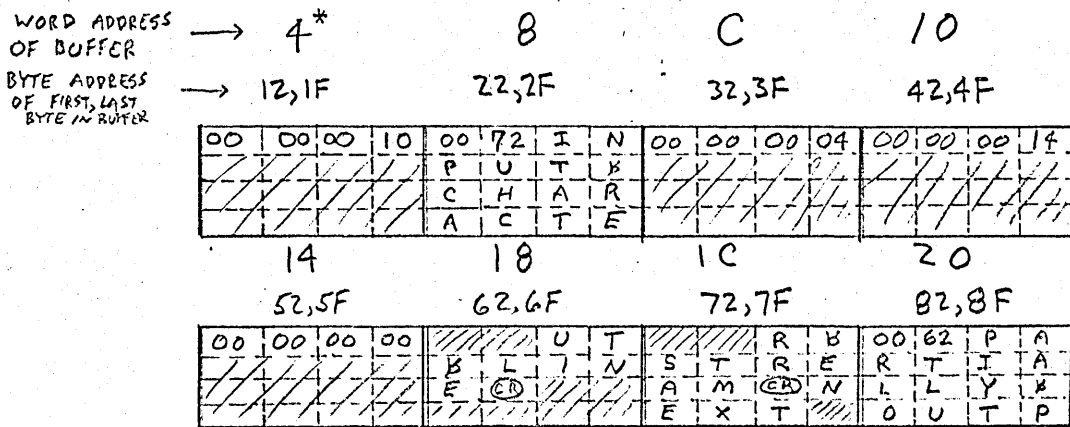 WORD ADDRESS
OF BUFFER → 4* 8 C 10
BYTE ADDRESS
OF FIRST, LAST → 12,1F 22,2F 32,3F 42,4F
BYTE IN BUFFER
00 00 00 10 00 72 I N 00 00 00 04 00 00 00 14
P U T ƀ
C H A R
A C T E
14 18 1C 20
52,5F 62,6F 72,7F 82,8F
00 00 00 00 U T R ƀ 00 62 P A
ƀ L I N S T R E R T I A
E CR A M CR N L L Y ƀ
E X T O U T P